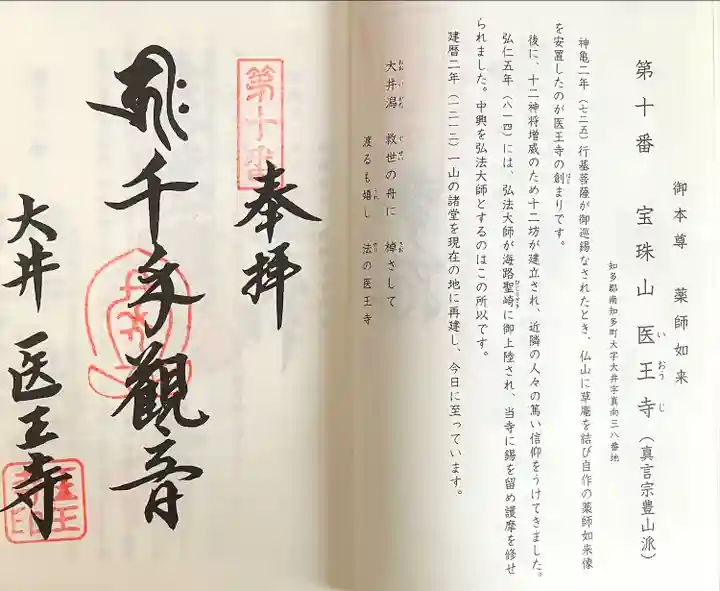 御本尊 薬師如来
第十番 宝珠山 医王寺（真言宗豊山派）
い おう じ
知多郡南知多町大字大井字真向三八番地
神亀二年（七二五）行基菩薩が御巡錫なされたとき、仏山に草庵を結び自作の薬師如来像
を安置したのが医王寺の創まりです。
はじ
後に、十二神将増威のため十二坊が建立され、近隣の人々の篤い信仰をうけてきました。
弘仁五年（八一四）には、弘法大師が海路聖崎に御上陸され、当寺に錫を留め護摩を修せ
ひじりざき
られました。中興を弘法大師とするのはこの所以です。
建暦二年（一二一二）一山の諸堂を現在の地に再建し、今日に至っています。
大井潟 救世の舟に 棹さして
おおいがた ぐぜい さお
渡るも嬉し 法の医王寺
うれ のり
第十番
奉拝
千手觀音
大井 医王寺